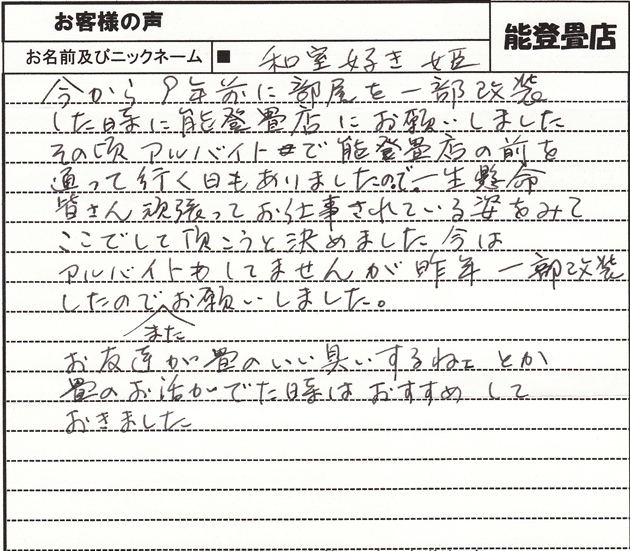 お客様の声
能登畳店
お名前及びニックネーム ■ 和室好き 姫
今から9年前に部屋を一部改装
した時に能登畳店にお願いしました
その頃アルバイトで能登畳店の前を
通って行く日もありましたので一生懸命
皆さん頑張ってお仕事されている姿をみて
ここでして頂こうと決めました 今は
アルバイトもしてませんが昨年一部改装
したのでお願いしました。
また
お友達が畳のいい臭いするねェとか
畳のお話がでた時はおすすめして
おきました